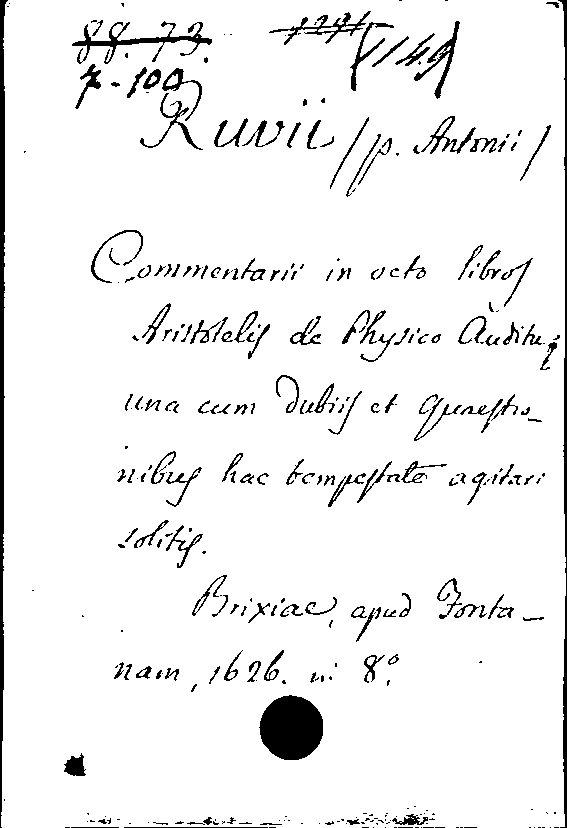 88. 73.
7-100
1149
Ruvii /p. Antonii/
Commentarii in octo libros
Aristotelis de Physico Auditu,
una cum dubiis et quaestio-
nibus hac tempestate agitari
solitis.
Brixiae, apud Fonta-
nam, 1626. in 8.º